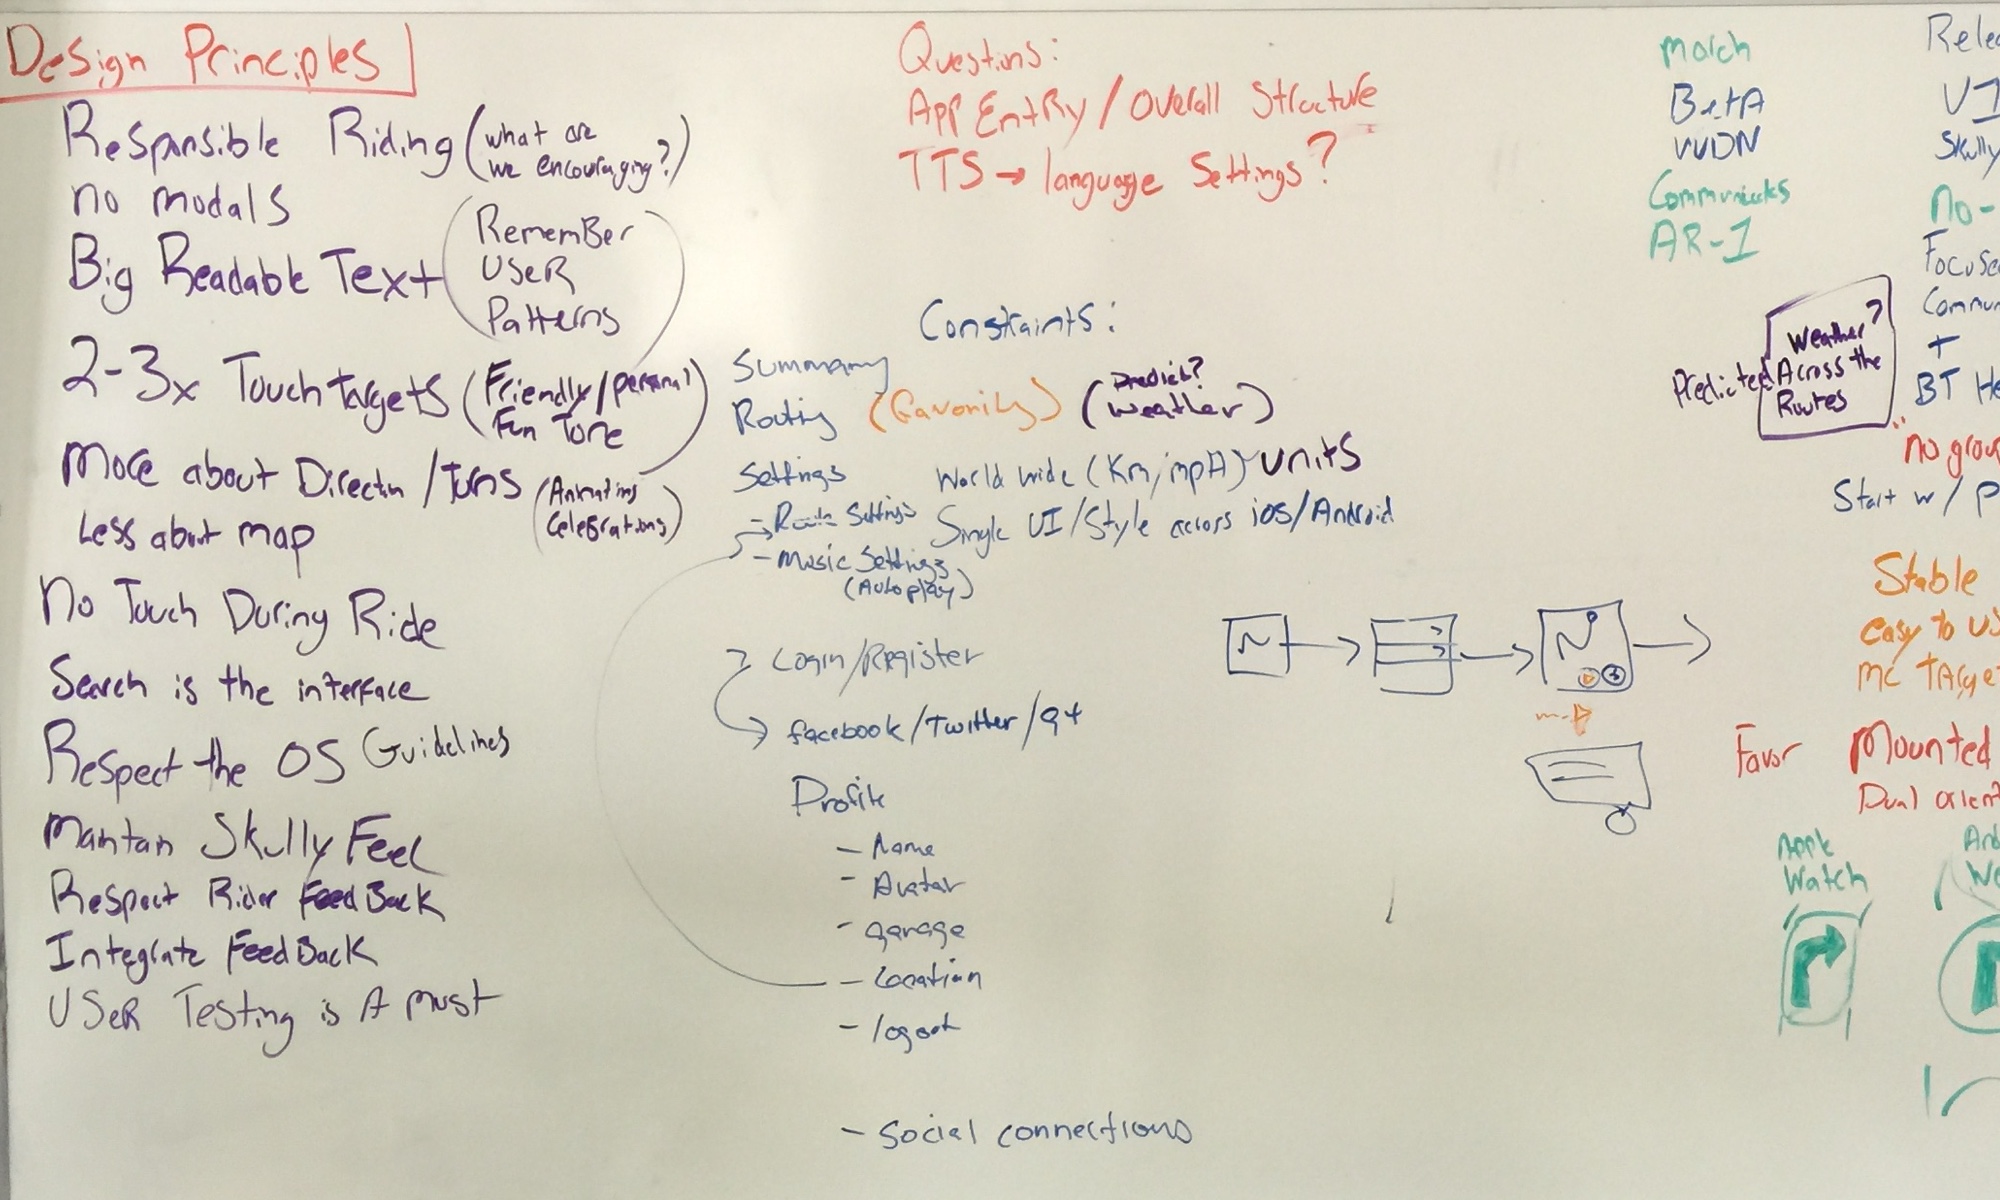 Design Principles
Responsible Riding (what are
we encouraging?)
no modals
Big Readable Text
(Remember
User
Patterns)
2-3x Touch targets (Friendly/personal
Fun Tone)
More about Direction/Turns
(Animations
Celebrations)
Less about map
No Touch During Ride
Search is the interface
Respect the OS Guidelines
Maintain Skully Feel
Respect Rider FeedBack
Integrate FeedBack
User Testing is A must
Questions:
App Entry / Overall Structure
TTS → language Settings?
Constraints:
Summary
Routing (Favorites) (Predict?
weather)
Settings
- Route Settings
- Music Settings
(Autoplay)
World wide (Km/mpH) units
Single UI/Style across ios/Android
Login/Register
facebook/Twitter/g+
Profile
- Name
- Avatar
- garage
- Location
- logout
- Social connections
March
BetA
VVDN
AR-1
Predicted
Weather?
Across the
Routes
V1
Skully
no-
+
BT He
Start w/ P
Stable
easy to us
MC TArget
Favor Mounted
Dual orient
Watch